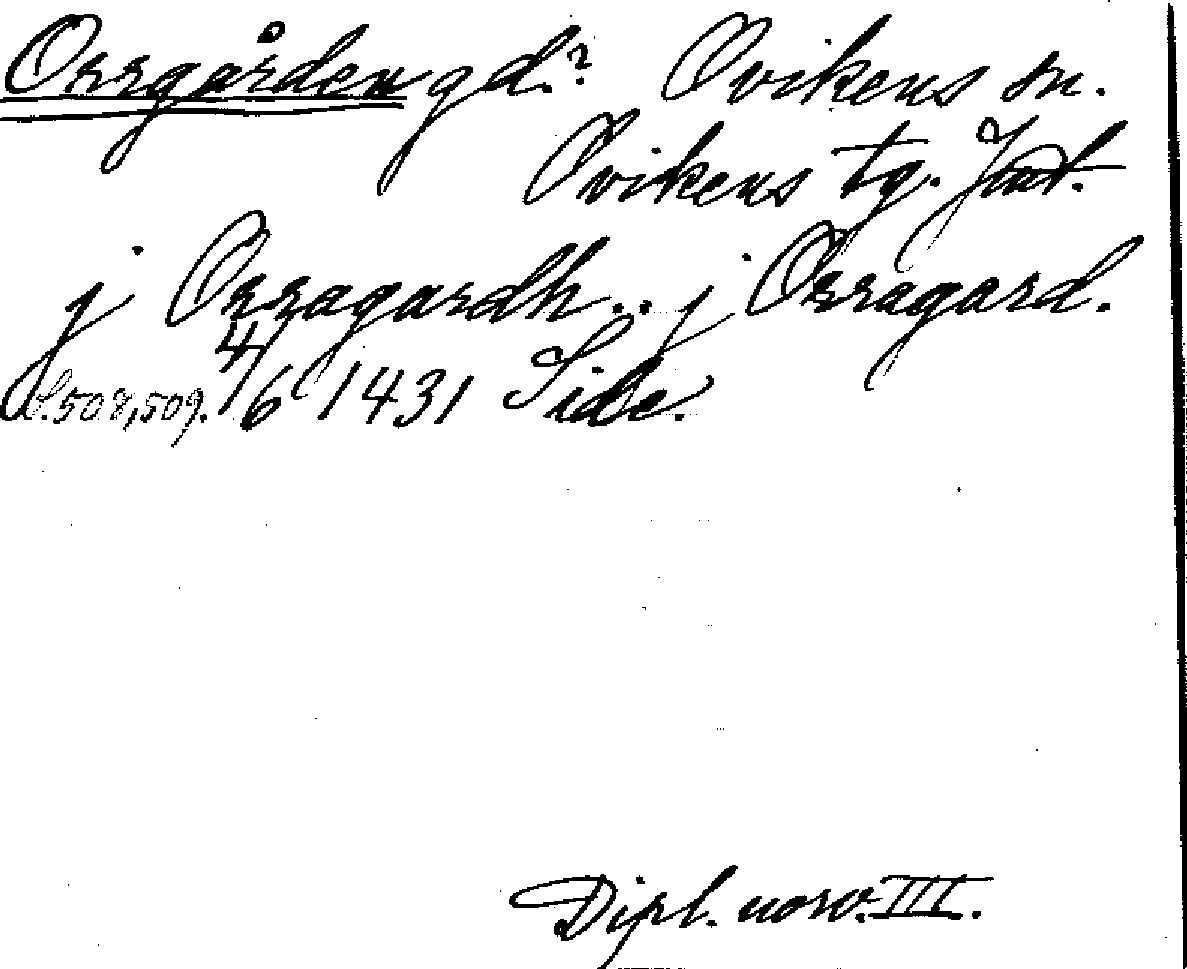 Orrgården gd? Ovikens sn.
Ovikens tg. Jmt.
j Orragardh .. j Orragard.
S. 508, 509. 4/6 1431 Sidæ.
Dipl. norv. III.